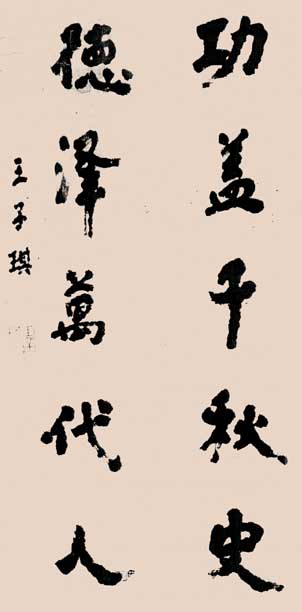 功盖千秋史
德泽萬代人
王子琪